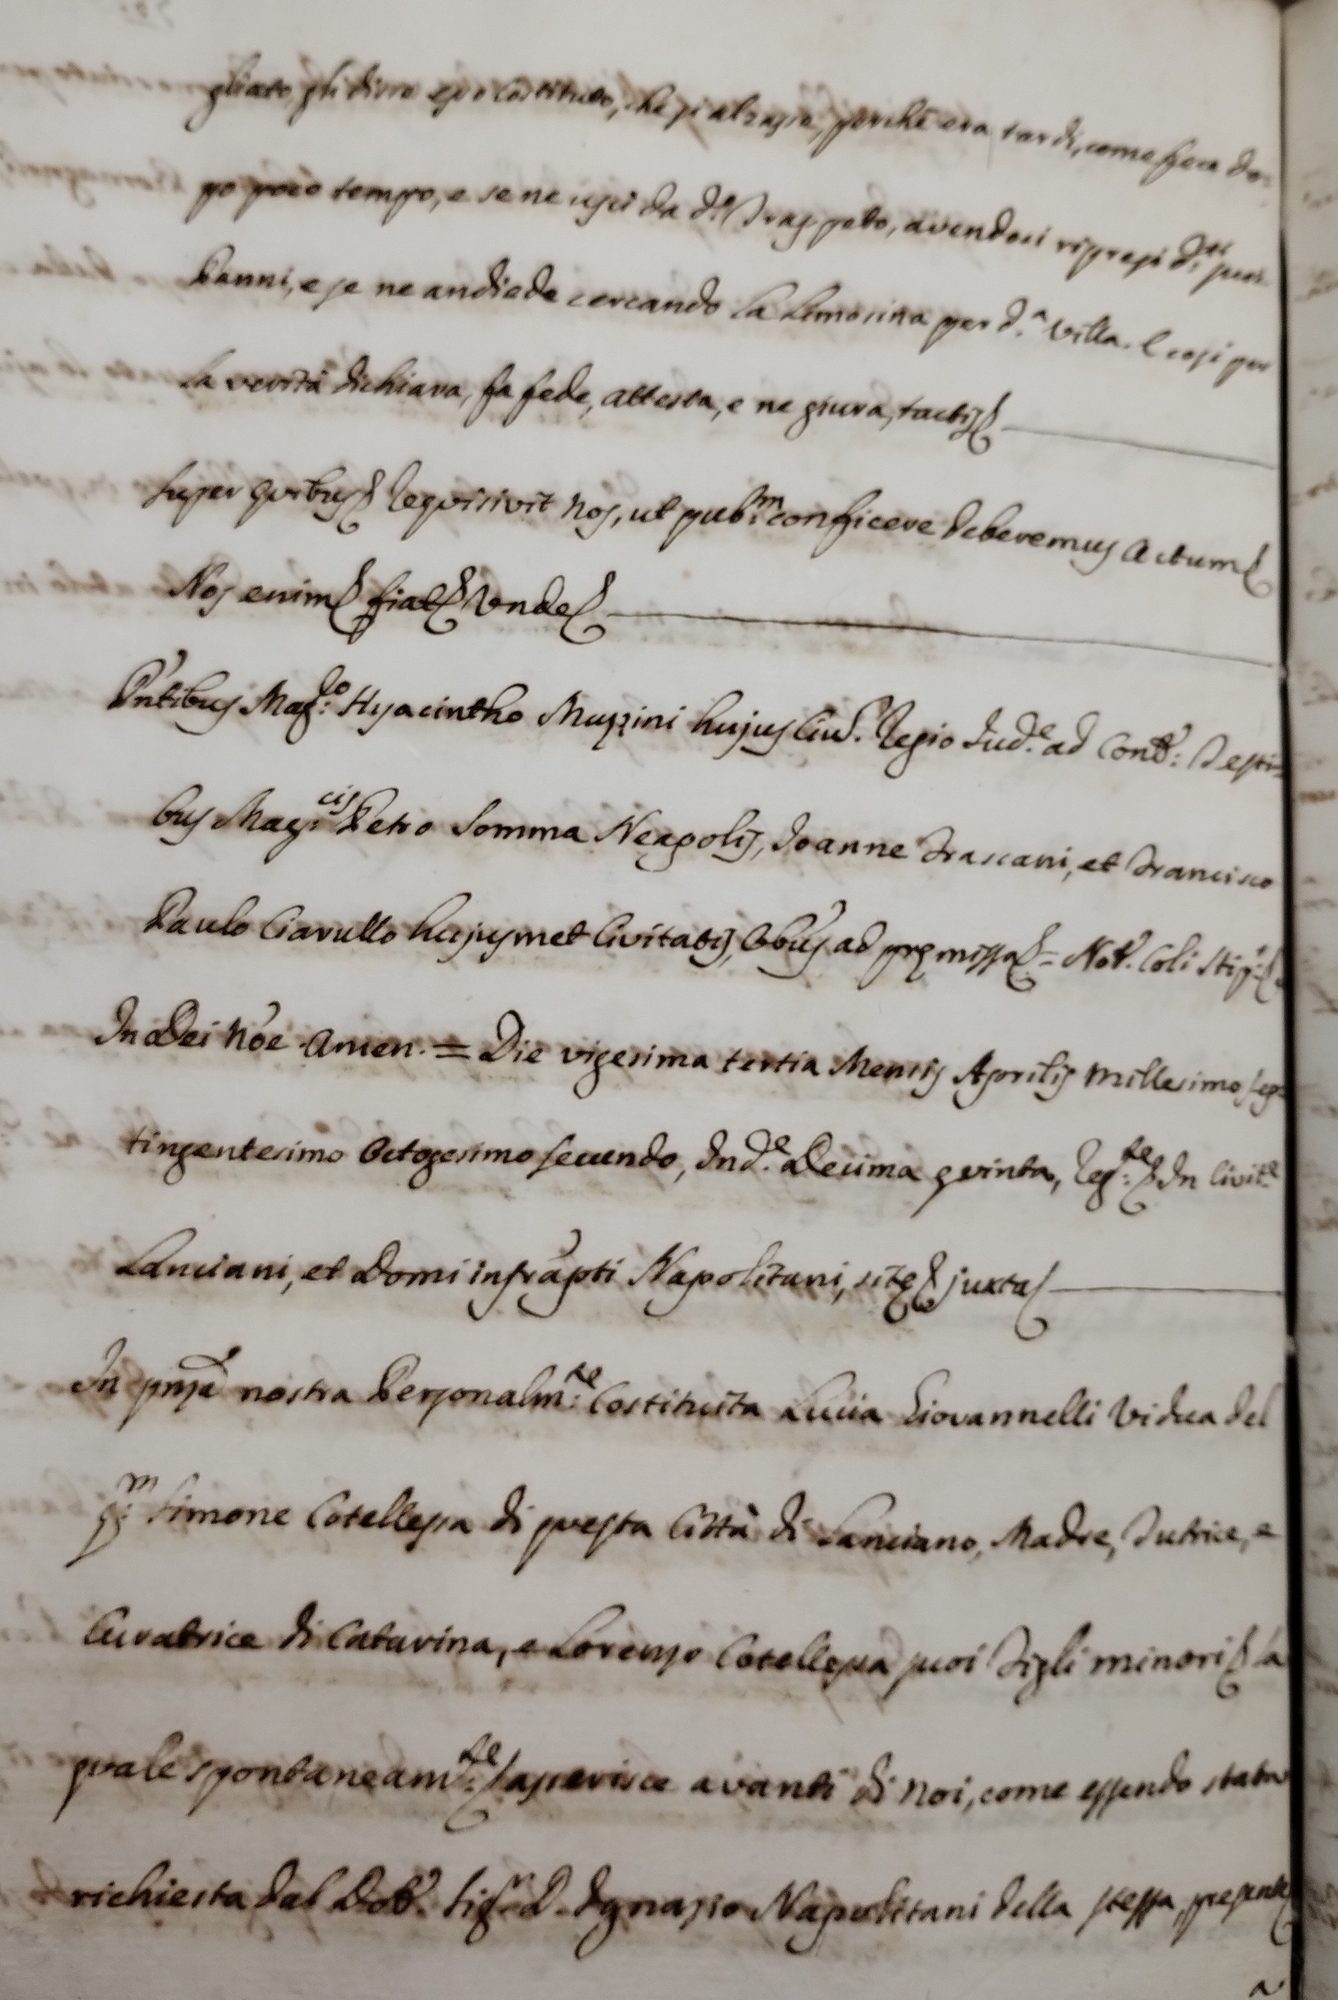 gliato, gli disse esso Costituto, che si alzasse, perchè era tardi, come fece do-
po poco tempo, e se ne uscì da d.º Trappeto, avendosi ripresi d.ti suoi
Panni, e se ne andiede cercando la Limosina per d.ª Villa. E così per
la verità dichiara, fa fede, attesta, e ne giura, tactis
Super quibus Requisivit Nos, ut pub.m conficere deberemus Actum
Nos enim fiat Unde
Pñtibus Mag.co Hyacintho Muzzini hujus Civ. Regio Jud.e ad Cont.: Testi-
bus Mag.cis Petro Somma Neapolis, Joanne Trascani, et Francisco
Paulo Ciarullo hujusmet Civitatis, Obüs ad premissa = Not. Coli Stip.
In Dei Nõe Amen. = Die vigesima tertia Mensis Aprilis Millesimo sep-
tingentesimo Octogesimo secundo, Ind.e Decima quinta, Reg.te In Civit.e
Lanciani, et Domi infrapti Napolitani, site juxta
In pñza nostra Personalm.te Costituita Lucia Giovannelli Vidua del
q.m Simone Cotellessa di questa Città di Lanciano, Madre, Tutrice, e
Curatrice di Catarina, e Lorenzo Cotellessa suoi Figli minori la
quale spontaneam.te asserisce avanti di Noi, come essendo stata
richiesta dal Dot. Sig.r D. Ignazio Napolitani della stessa, presente